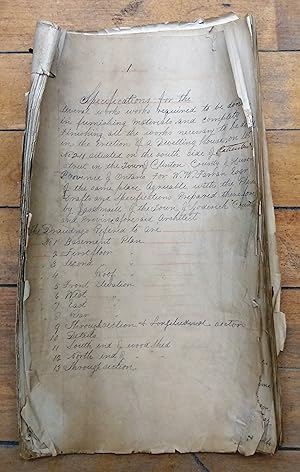 1
Specifications for the
several works required to be done
in furnishing materials and completely
finishing all the works necessary to be done
in the Erection of a Dwelling House on Lot
situated on the south side of
street in the Town of County
Province of Ontario For W. W. Esqr
of the same place Agreeable with the Plans
Drafts and Specifications Prepared therefore
by of the Town of
and Province aforesaid Architect
The Drawings Refered to are
No 1 Basement Plan
" 2 First floor "
" 3 Second " "
" 4 Roof "
" 5 Front Elevation
" 6 West "
" 7 East "
" 8 Rear "
" 9 Through section & Longitudinal section
" 10 Details
" 11 South end of wood shed
" 12 North end of "
" 13 Through section